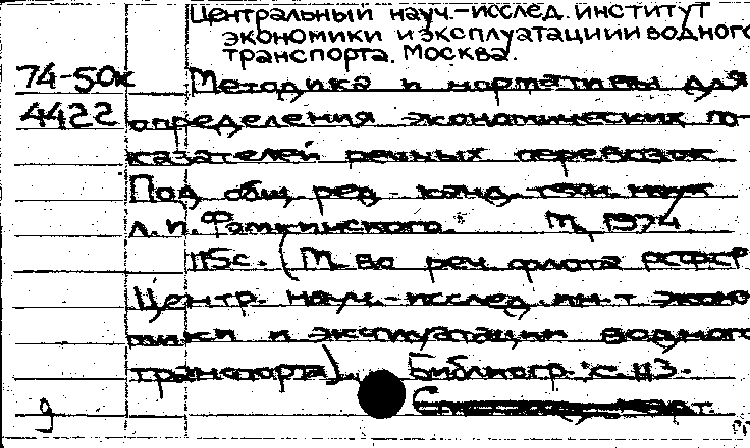 Центральный науч.-исслед. институт
экономики и эксплуатации водного
транспорта. Москва.
74-50к Методика и нормативы для
4422 определения экономических по-
казателей речных перевозок.
Под общ. ред. канд. техн. наук
Л. П. Фамкинского. М., 1974.
115с. (М-во реч. флота РСФСР
Центр. науч.-исслед. ин-т эконо
мики и эксплуатации водного
транспорта). Библиогр.: с. 113.